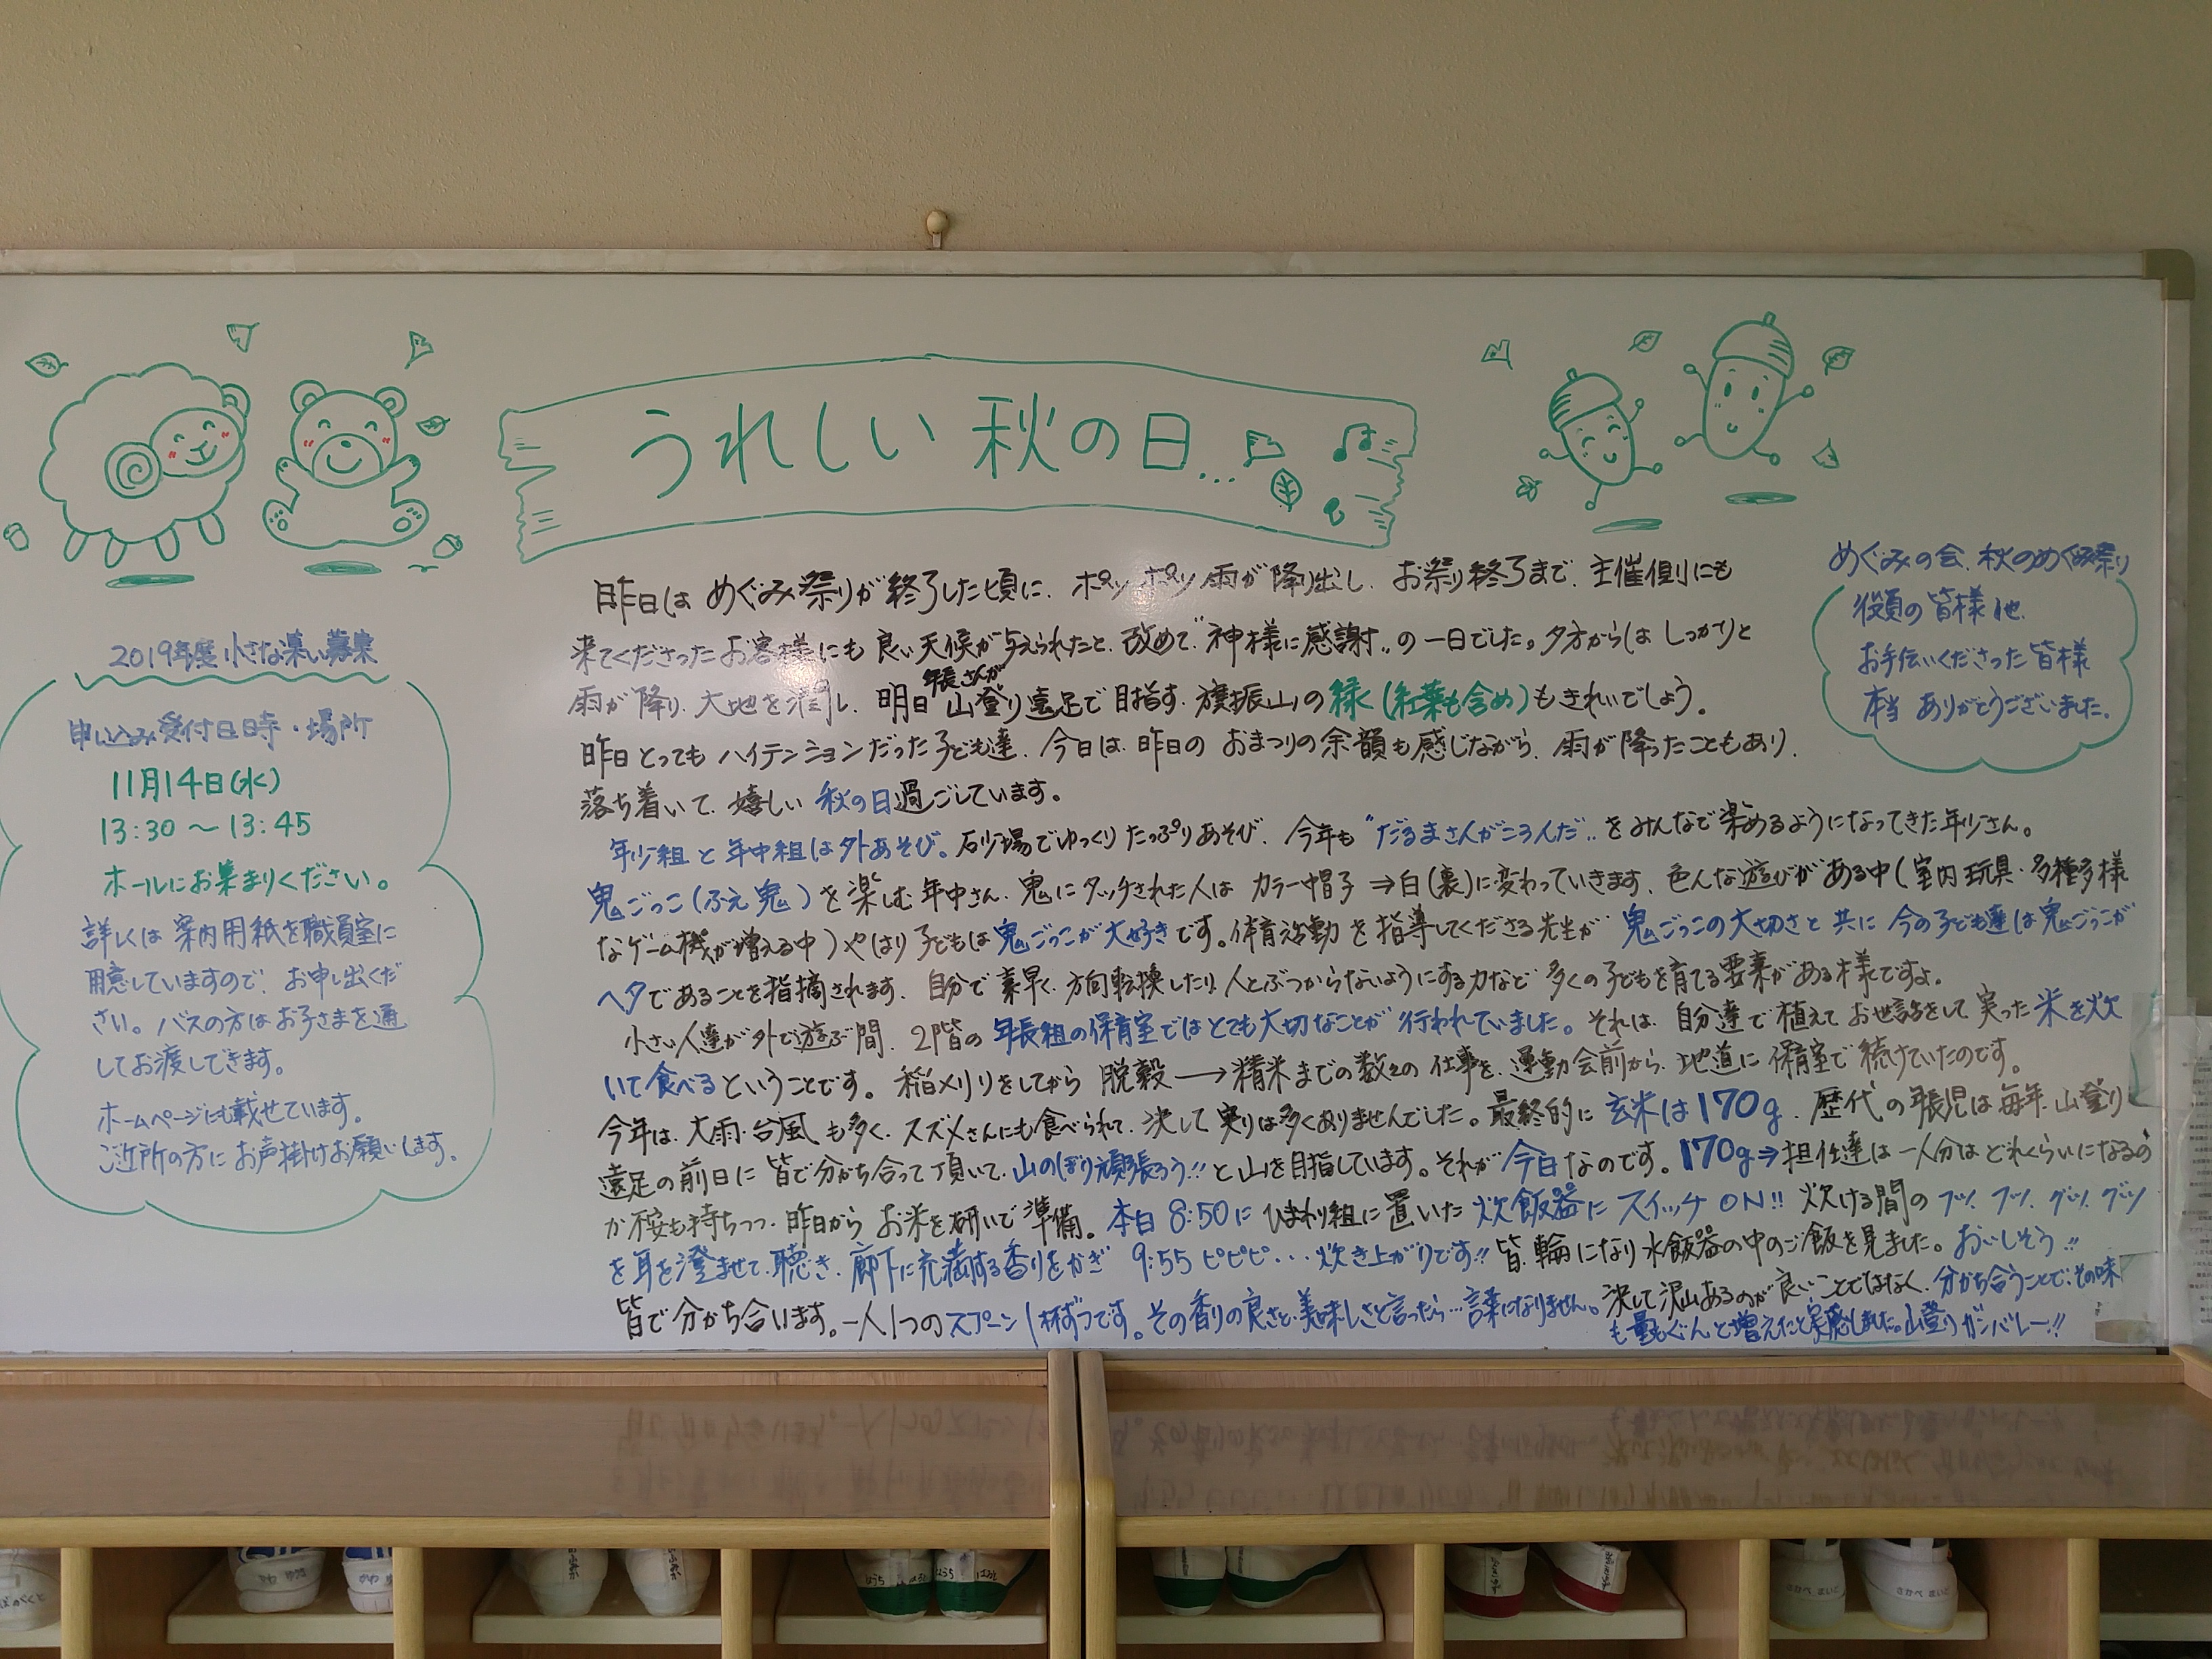 うれしい 秋の日...
昨日は めぐみ祭りが終了した頃に、ポツポツ雨が降り出し、お祭り終了まで、主催側にも
来てくださったお客様にも 良い天候が与えられたと、改めて"神様に感謝"の一日でした。夕方からは しっかりと
年長さんが
雨が降り、大地を潤し、明日 山登り遠足で目指す、旗振山の緑(紅葉も含め)もきれいでしょう。
昨日とっても ハイテンションだった子ども達、今日は、昨日の おまつりの余韻も感じながら、雨が降ったこともあり、
落ち着いて、嬉しい 秋の日過ごしています。
年少組と年中組は外あそび。石少場でゆっくりたっぷりあそび、今年も "だるまさんがころんだ"をみんなで楽めるようになってきた年少さん。
鬼ごっこ(ふえ鬼)を楽しむ年中さん、鬼にタッチされた人は カラー帽子⇒白(裏)に変わっていきます、色んな遊びがある中(室内玩具・多種多様
なゲーム機が増える中)やはり子どもは鬼ごっこが大好きです。体育活動を指導してくださる先生が 鬼ごっこの大切さと共に 今の子ども達は鬼ごっこが
ヘタであることを指摘されます、自分で素早く、方向転換したり、人とぶつからないようにする力など 多くの子どもを育てる要素がある様ですよ。
小さい人達が外で遊ぶ間、2階の年長組の保育室ではとても大切なことが行われていました。それは、自分達で植えてお世話をして実った米を炊
いて食べるということです。稲メリリをしてから 脱穀→精米までの数々の仕事を、運動会前から、地道に保育室で続けていたのです。
今年は、大雨・台風も多く、スズメさんにも食べられて、決して実りは多くありませんでした。最終的に 玄米は170g、歴代の年長児は毎年、山登り
遠足の前日に皆で分かち合って頂いて、山のぼり頑張ろう!!と山を目指しています。それが今日なのです。170g⇒担任達は一人分はどれくらいになるの
か不安も持ちつつ、昨日から お米を研いで準備。本日8:50にひまわり組に置いた炊飯器に スイッチON!! 炊ける間の ブツ、ブツ、グツ、グツ
を耳を澄ませて、聴き、廊下に充満する香りをかぎ 9:55ピピピ...炊き上がりです!! 皆、輪になり炊飯器の中のご飯を見ました。おいしそう!!
皆で分かち合います。一人1つのスプーン1杯ずつです。その香りの良さと、美味しさと言ったら...言葉になりません。決して沢山あるのが良いことではなく、分かち合うことで、その味
も量もぐんと増えたと実感しました。山登りガンバレー!!
2019年度 小さな集い募集
申し込み受付日時・場所
11月14日(水)
13:30〜13:45
ホールにお集まりください。
詳しくは 案内用紙を職員室に
用意していますので、お申し出くだ
さい。バスの方はお子さまを通
してお渡しできます。
ホームページにも載せています。
ご近所の方に お声掛けお願いします。
めぐみの会、秋のめぐみ祭り
役員の皆様他、
お手伝いくださった皆様
本当 ありがとうございました。